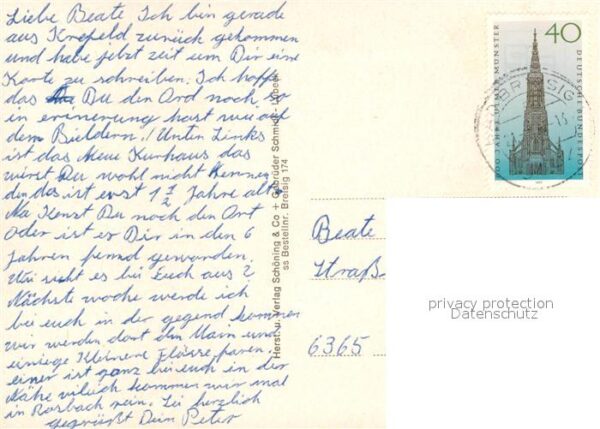 Liebe Beate Ich bin gerade
aus Krefeld zurück gekommen
und habe jetzt zeit um Dir eine
Karte zu schreiben. Ich hoffe
das Du den Ord noch so
in erinnerung hast wie auf
dem Bieldern. Unten Links
ist das Neue Kurhaus das
wirst Du wohl nicht kennen
den das ist erst 1 1/2 Jahre alt.
Na Kenst Du noch den Ort
Oder ist er Dir in den 6
Jahren fremd geworden.
Wie sieht es bei Euch aus?
Nächste woche werde ich
bei euch in der gegend kommen
wir werden dort den Main und
einiege Kleinere Flüsse faren.
einer ist ganz bei euch in der
Nähe vileich kommen wir mal
in Rosbach rein. Sei herzlich
gegrüßt Dein Peter
Herst. u. Verlag Schöning & Co + Gebrüder Schmidt - Lübeck
ss Bestellnr. Breisig 174
40
600 JAHRE ULMER MÜNSTER
DEUTSCHE BUNDESPOST
BREISIG
Beate
Straß
6365
privacy protection
Datenschutz